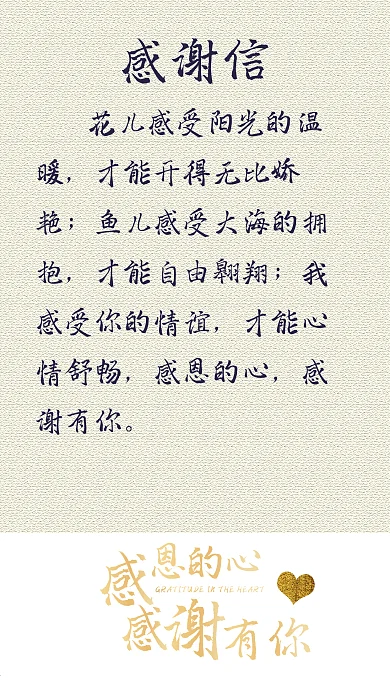 感谢信
花儿感受阳光的温
暖，才能开得无比娇
艳；鱼儿感受大海的拥
抱，才能自由翱翔；我
感受你的情谊，才能心
情舒畅，感恩的心，感
谢有你。
感恩的心
GRATITUDE IN THE HEART
感谢有你